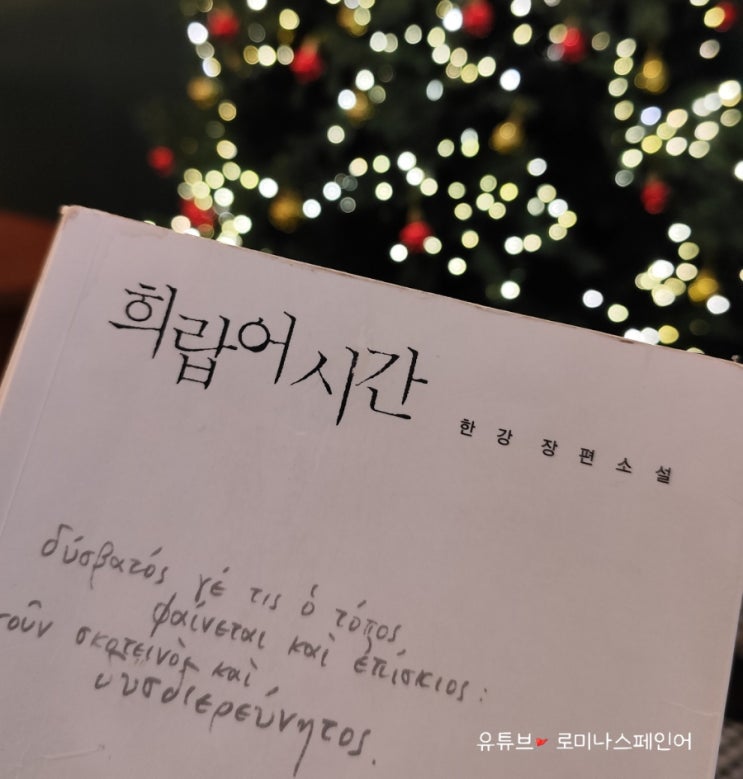 희랍어 시간
한강 장편소설
δύσβατός γέ τις ὁ τόπος
φαίνεται καὶ ἐπίσκιος:
γοῦν σκοτεινὸς καὶ
δυσδιερεύνητος.
유튜브 로미나스페인어